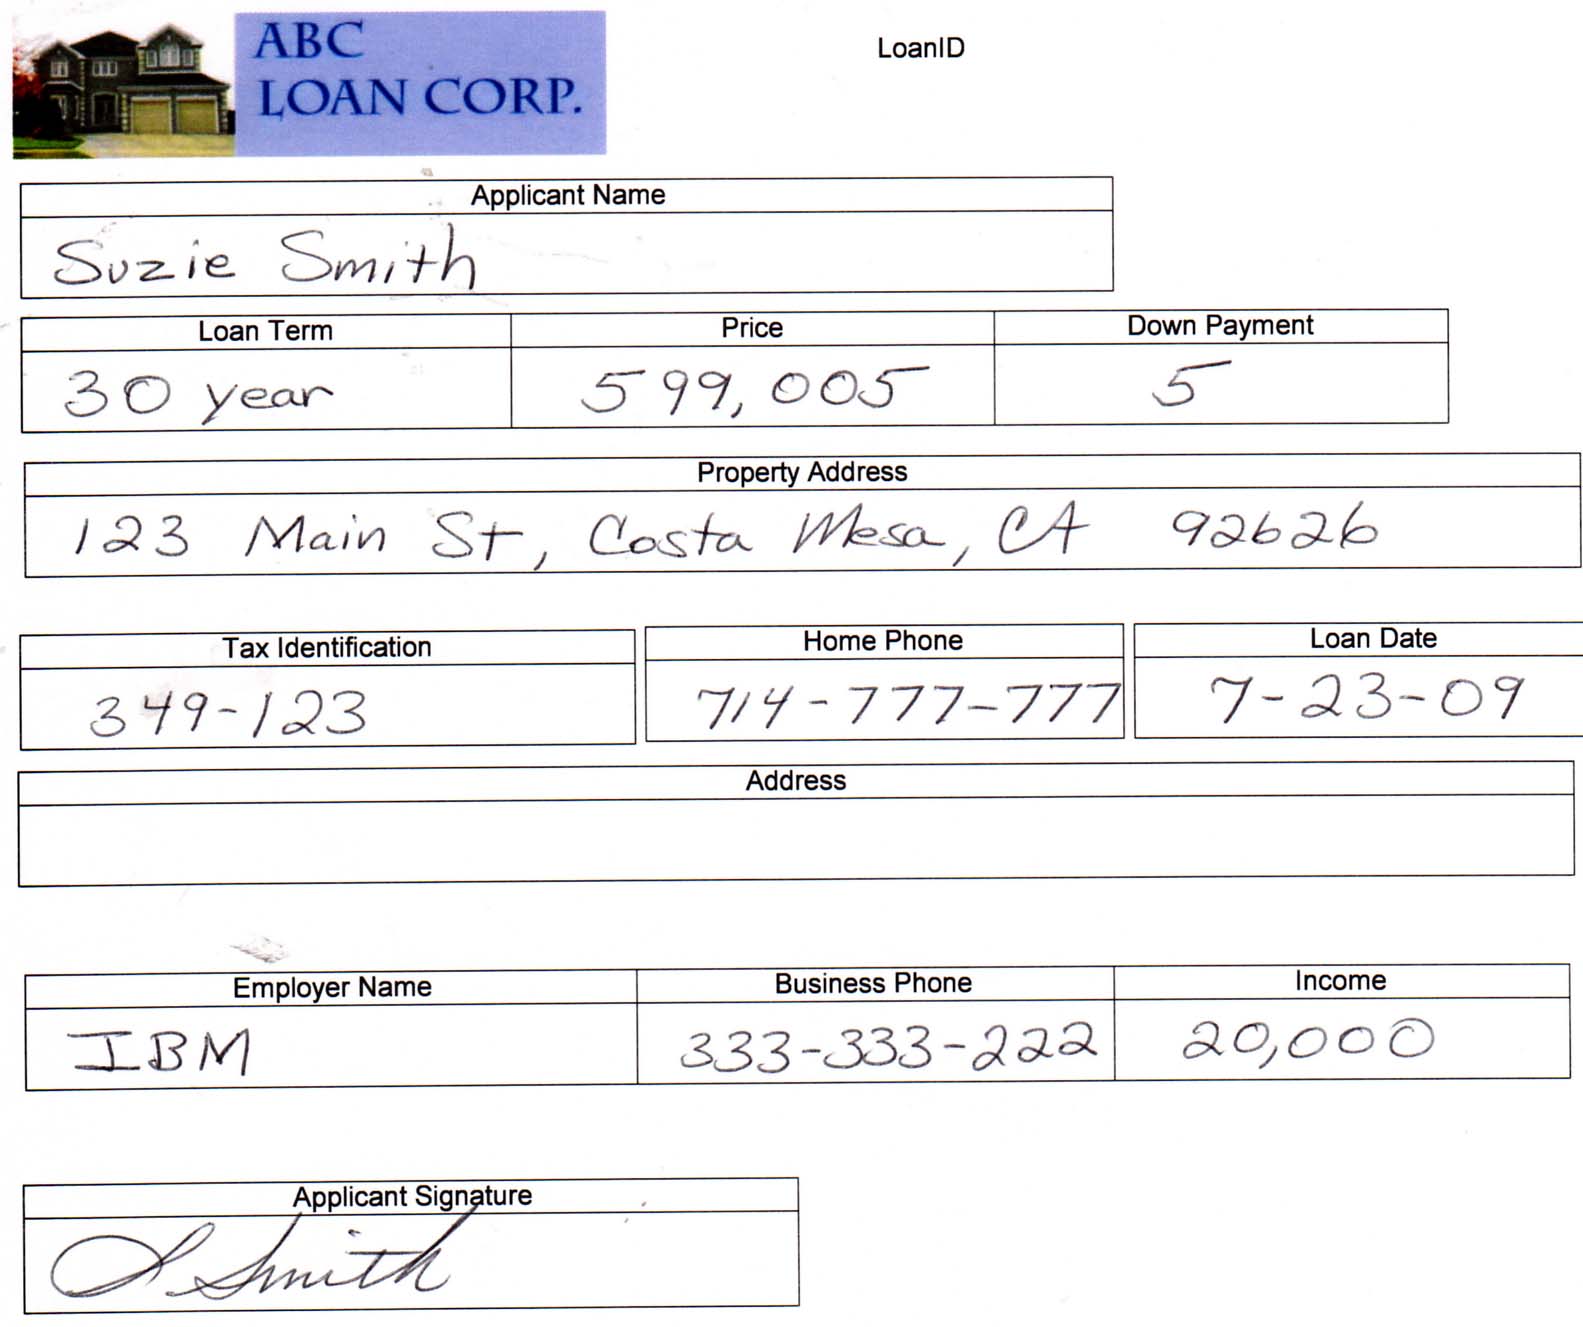 ABC
LOAN CORP.
LoanID
Applicant Name
Suzie Smith
Loan Term Price Down Payment
30 year 599,005 5
Property Address
123 Main St, Costa Mesa, CA 92626
Tax Identification Home Phone Loan Date
349-123 714-777-777 7-23-09
Address
Employer Name Business Phone Income
IBM 333-333-222 20,000
Applicant Signature
S. Smith